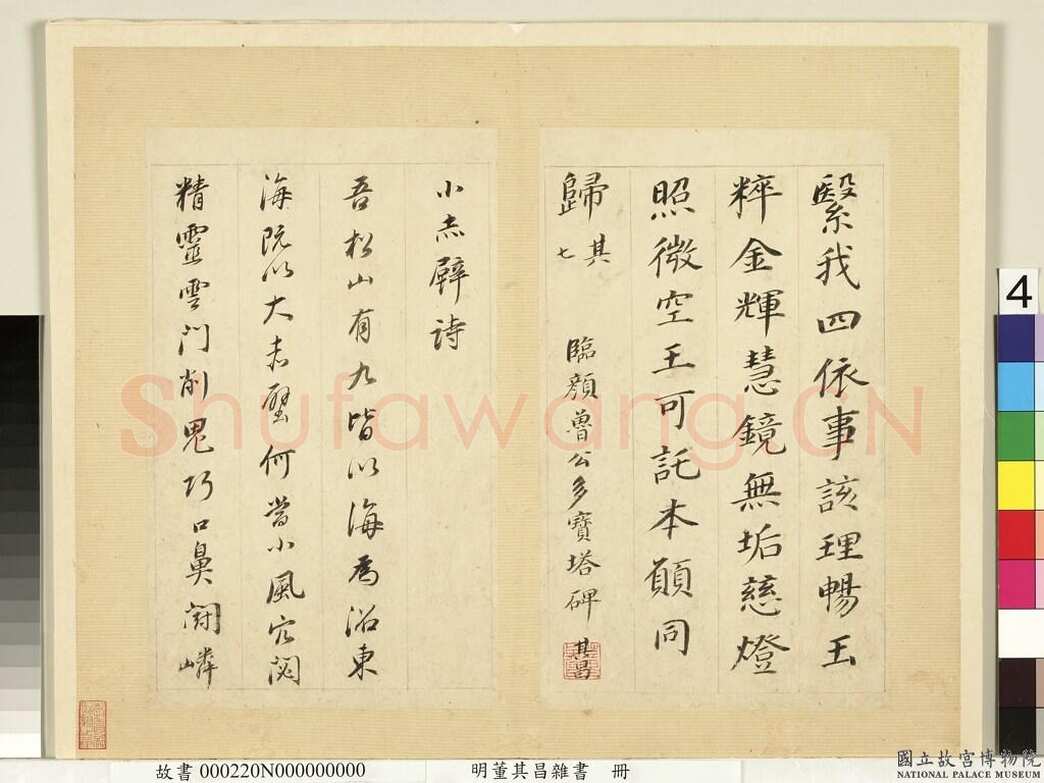 繄我四依事該理暢玉
粹金輝慧鏡無垢慈燈
照微空王可託本願同
歸其七
臨顏魯公多寶塔碑其昌
小赤壁詩
吾松山有九皆以海為沼東
海既以大赤壁何當小風穴閟
精靈雲門削鬼巧口鼻閜嶙
Shufawang.CN
4
故書 000220N000000000
明董其昌雜書 冊
國立故宮博物院
NATIONAL PALACE MUSEUM